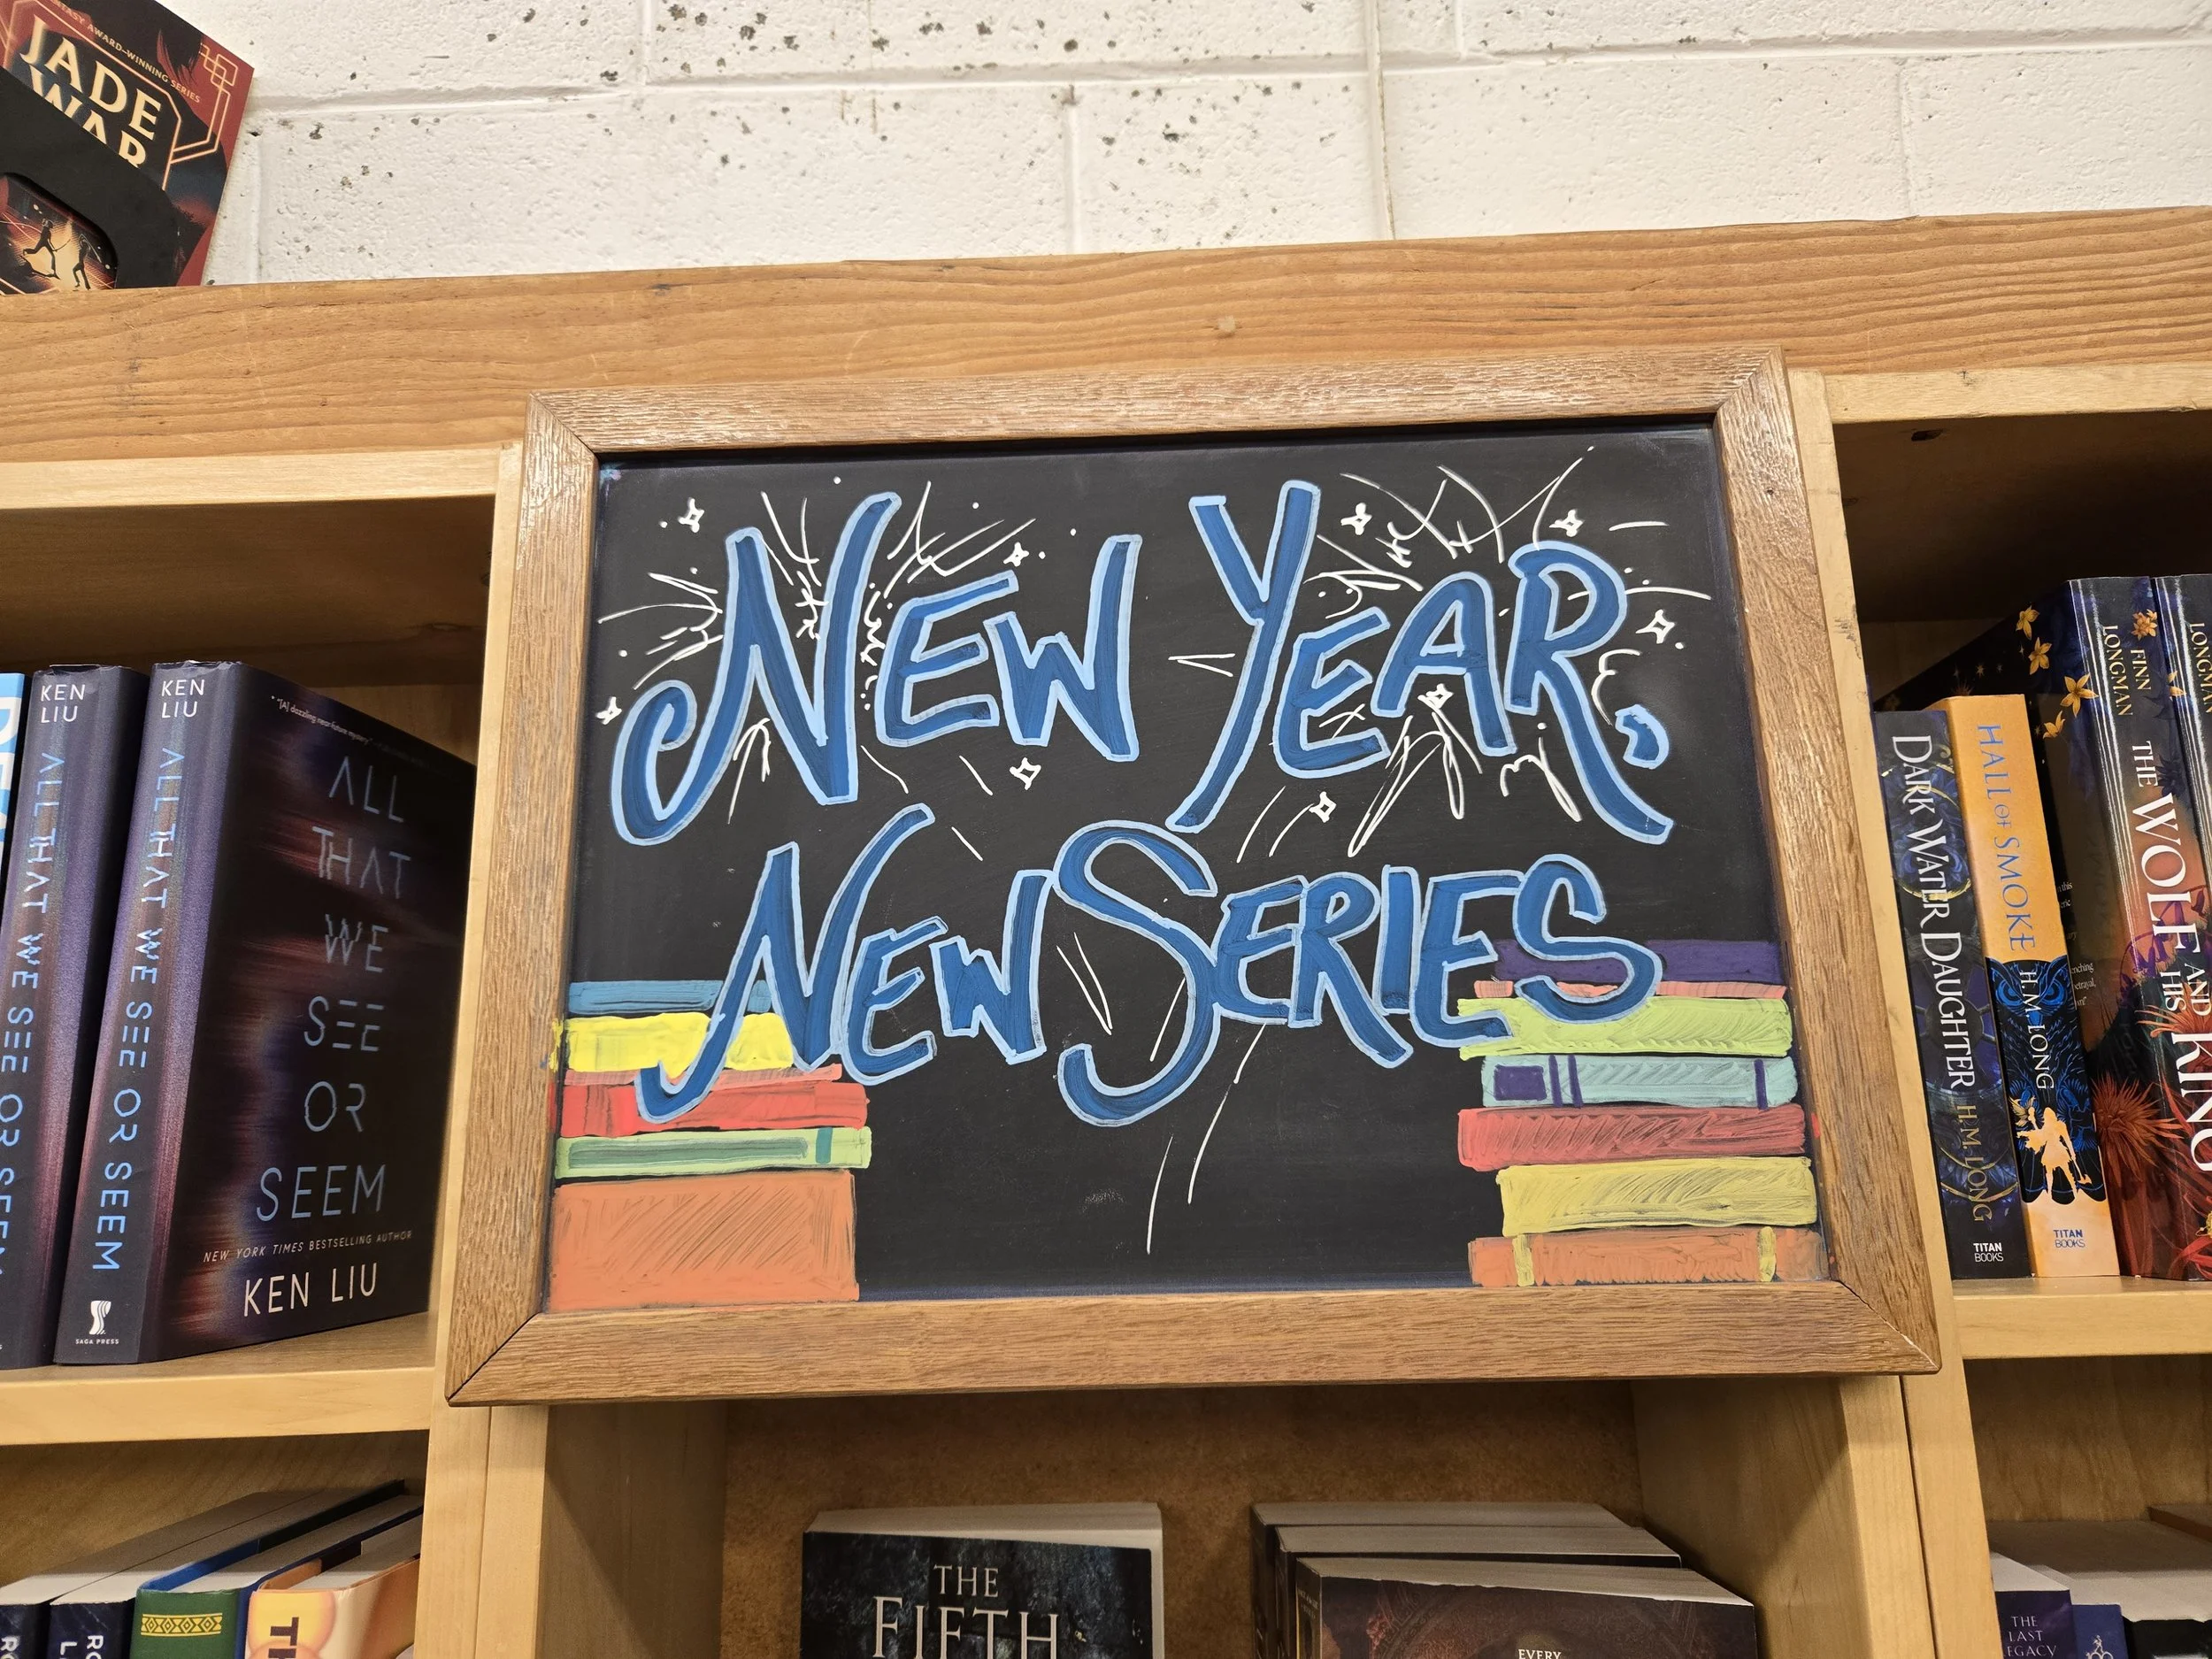 FANTASY AWARD-WINNING SERIES
JADE
WAR
NEW YEAR,
NEW SERIES
KEN
LIU
ALL THAT WE SEE OR SEEM
KEN
LIU
ALL THAT WE SEE OR SEEM
SAGA PRESS
"[A] dazzling near-future mystery"
ALL
THAT
WE
SEE
OR
SEEM
NEW YORK TIMES BESTSELLING AUTHOR
KEN LIU
DARK WATER DAUGHTER
H.M. LONG
TITAN
BOOKS
HALL OF SMOKE
H.M. LONG
TITAN
BOOKS
FINN
LONGMAN
THE WOLF AND HIS KING
LONGMAN
THE
FIFTH
EVERY
THE
LAST
LEGACY